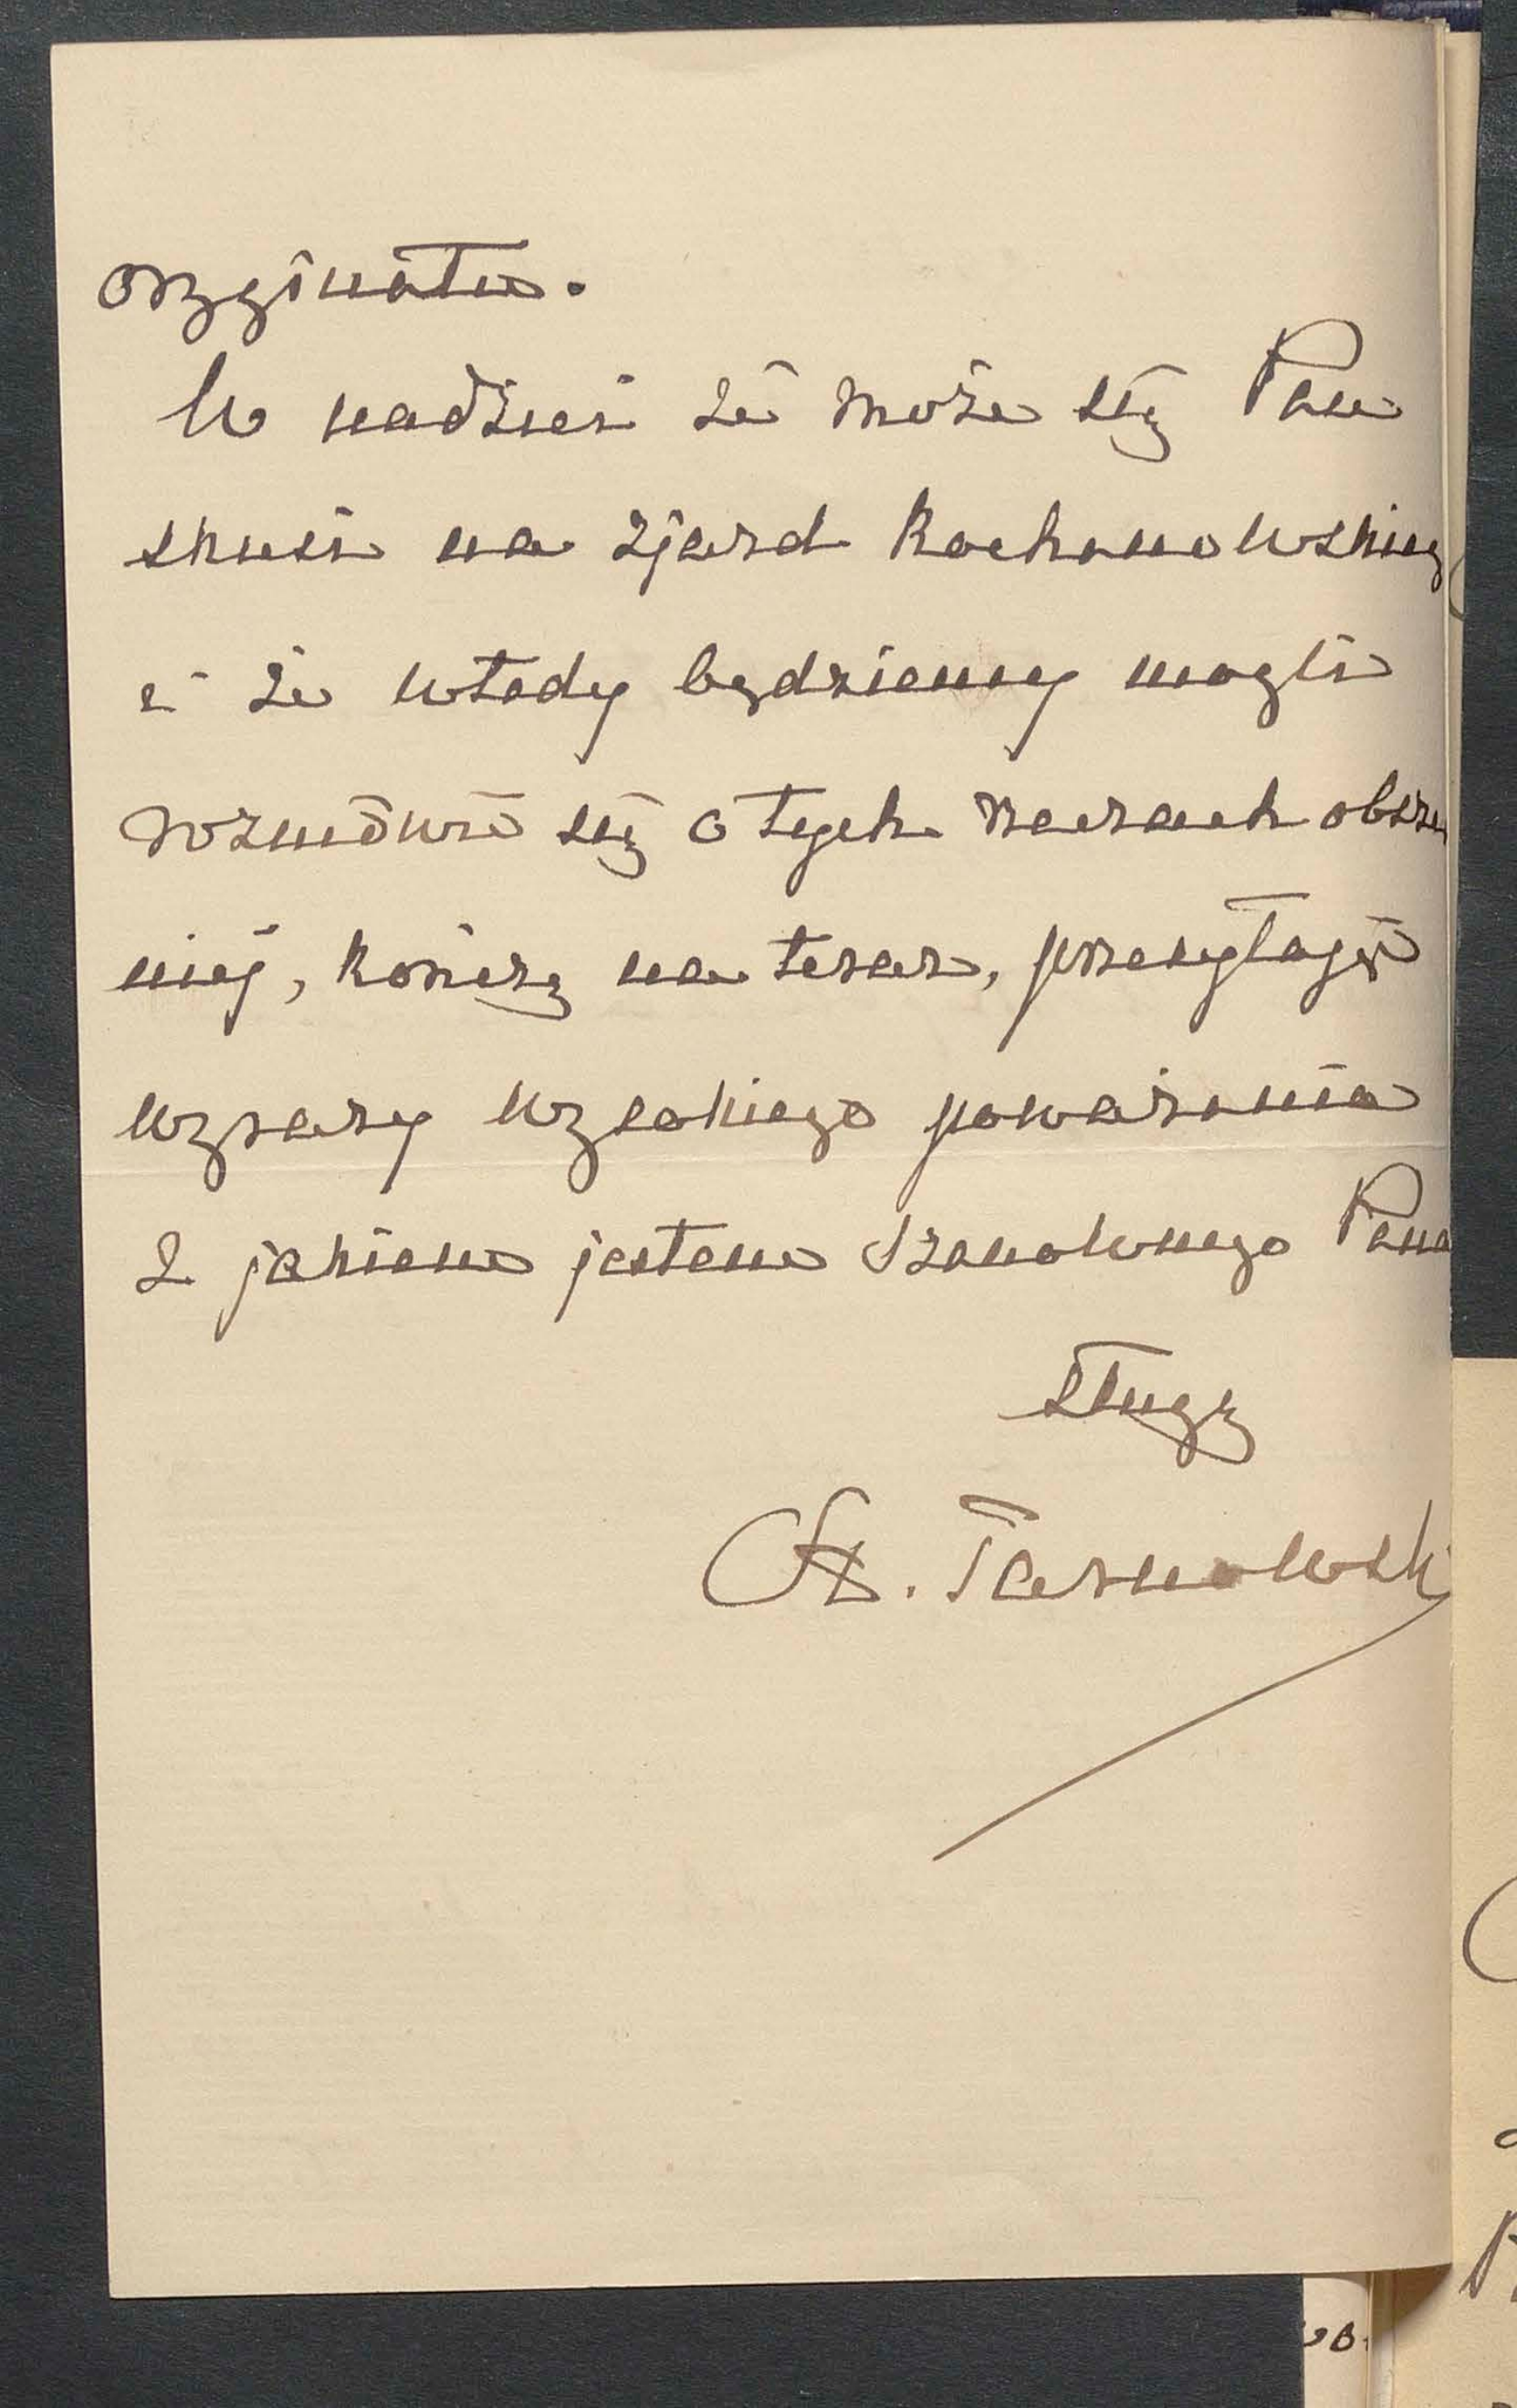 oryginału.
W nadziei że może się Pan
skusi na zjazd Kochanowskieg
i że wtedy będziemy mogli
rozmówić się o tych rzeczach obszer
niej, kończę na teraz, przesyłając
wyrazy wysokiego poważania
z jakiem jestem Szanownego Pana
sługą
St. Tarnowski